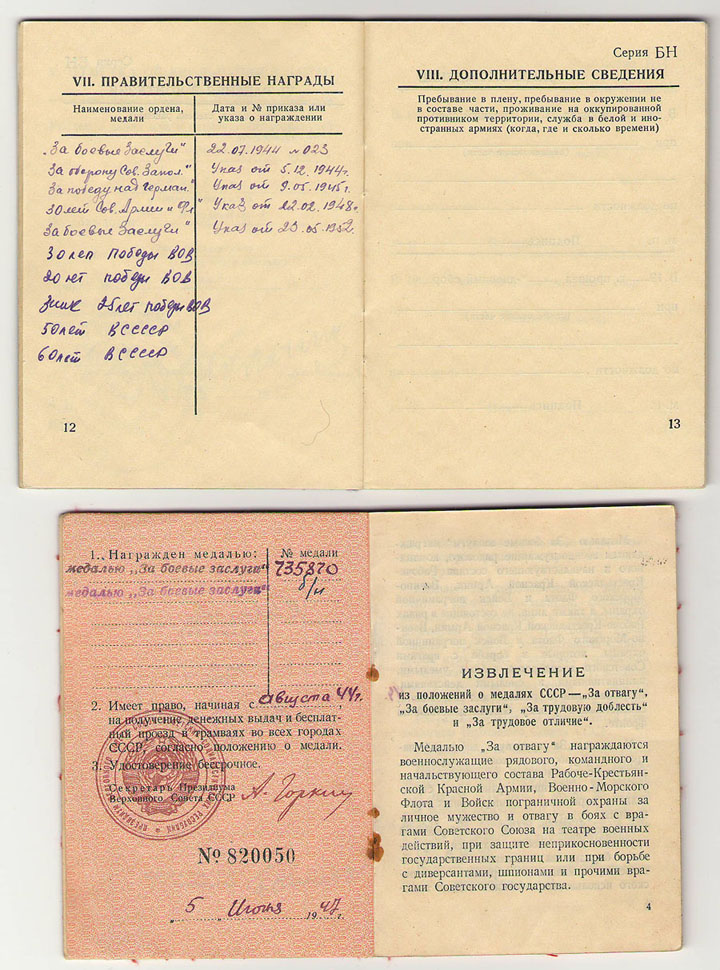 VII. ПРАВИТЕЛЬСТВЕННЫЕ НАГРАДЫ
Наименование ордена, медали
Дата и № приказа или указа о награждении
„За боевые Заслуги" 22.07.1944 № 023
За оборону Сов. Запол." Указ от 5.12.1944г.
За победу над Герман." Указ от 9.05.1945г.
30 лет Сов. Армии и Фл" Указ от 22.02.1948г.
За боевые Заслуги" Указ от 23.05.1952.
30 лет победы ВОВ
20 лет победы ВОВ
знак 25 лет победы ВОВ
50 лет ВСССССР
60 лет ВСССССР
12
Серия БН
VIII. ДОПОЛНИТЕЛЬНЫЕ СВЕДЕНИЯ
Пребывание в плену, пребывание в окружении не
в составе части, проживание на оккупированной
противником территории, служба в белой и ино-
странных армиях (когда, где и сколько времени)
13
1. Награжден медалью: № медали
медалью „За боевые заслуги" 735820
медалью „За боевые заслуги" б/н
2. Имеет право, начиная с августа 44г.,
на получение денежных выдач и бесплат-
ный проезд в трамваях во всех городах
СССР, согласно положению о медали.
3. Удостоверение бессрочное.
Секретарь Президиума
Верховного Совета СССР А. Горкин
№ 820050
„5" Июня 1947 г.
ИЗВЛЕЧЕНИЕ
из положений о медалях СССР — „За отвагу",
„За боевые заслуги", „За трудовую доблесть"
и „За трудовое отличие".
Медалью „За отвагу" награждаются
военнослужащие рядового, командного и
начальствующего состава Рабоче-Крестьян-
ской Красной Армии, Военно-Морского
Флота и Войск пограничной охраны за
личное мужество и отвагу в боях с вра-
гами Советского Союза на театре военных
действий, при защите неприкосновенности
государственных границ или при борьбе
с диверсантами, шпионами и прочими вра-
гами Советского государства.
4